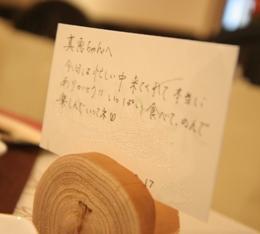 真恵ちゃんへ
今日は忙しい中 来てくれて 本当に
ありがとう!! いっぱい食べて、のんで
楽しんでいってネ
17